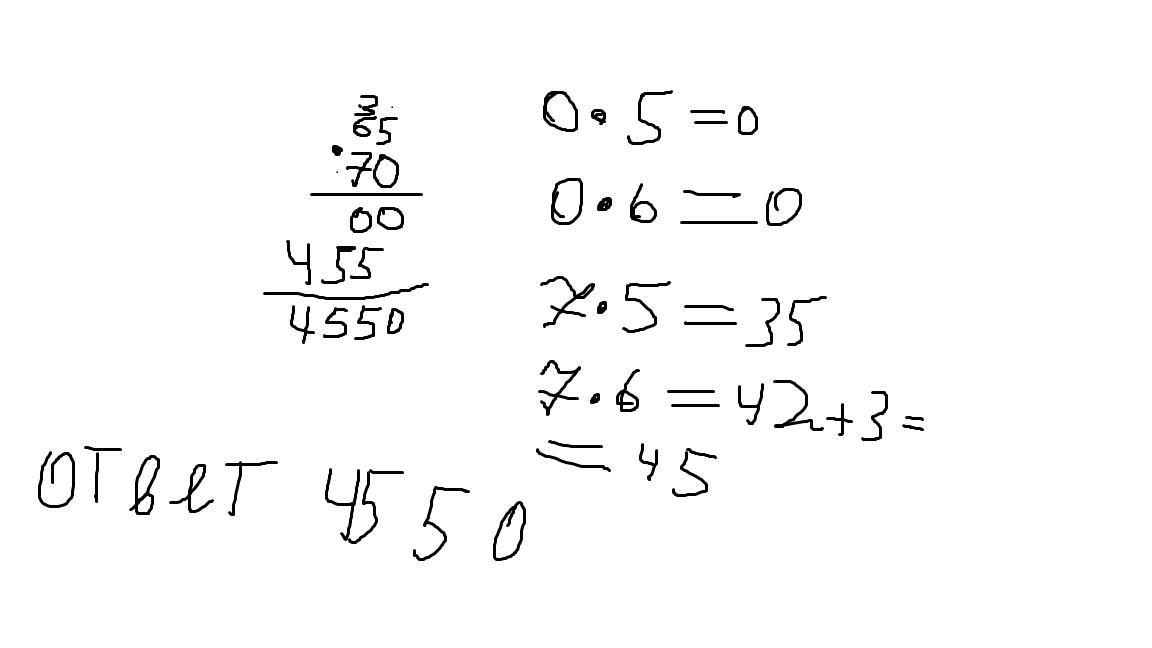 3
65
·70
00
455
4550
0·5=0
0·6=0
7·5=35
7·6=42+3=
=45
ответ 4550